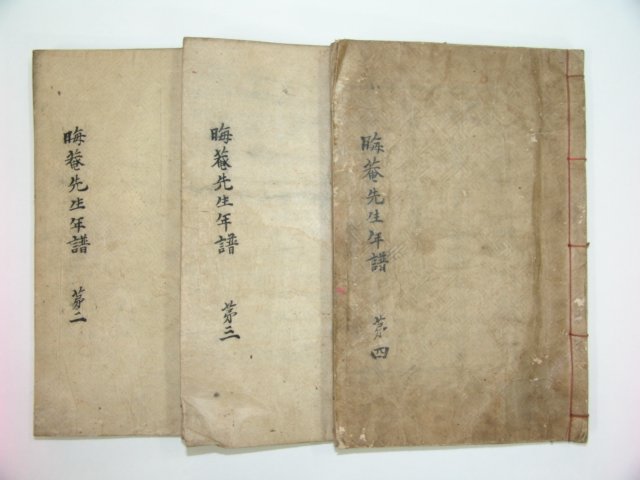 晦菴先生年譜 第二
晦菴先生年譜 第三
晦菴先生年譜 第四